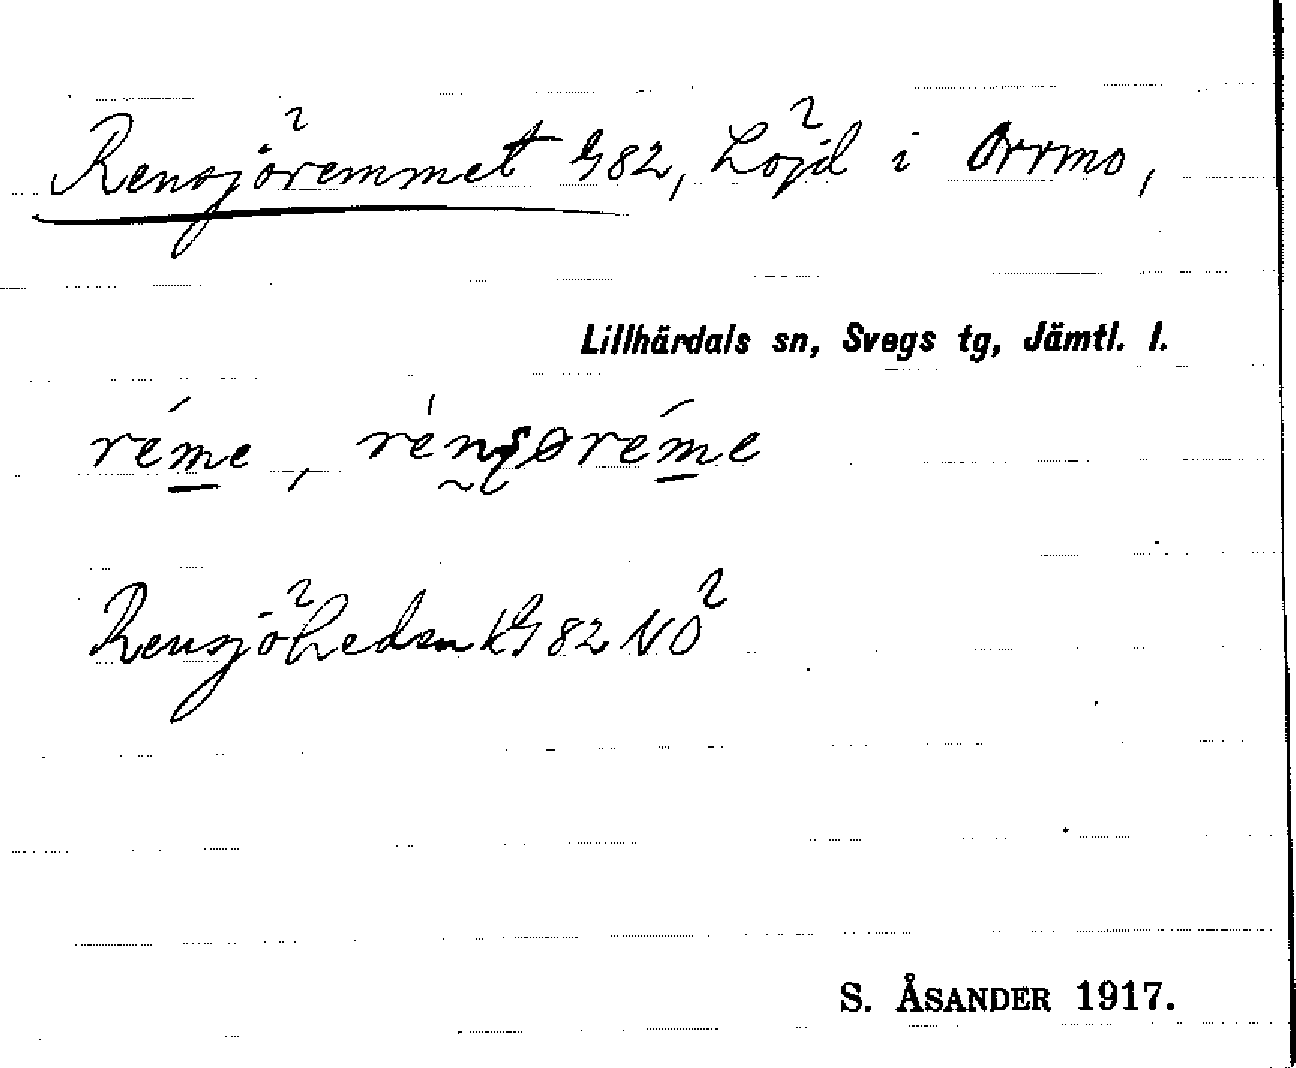 Rensjöremmet G82, Löjd i Orrmo,
Lillhärdals sn, Svegs tg, Jämtl. l.
réme, rénsøréme
Rensjöhedn G82 NO
S. ÅSANDER 1917.